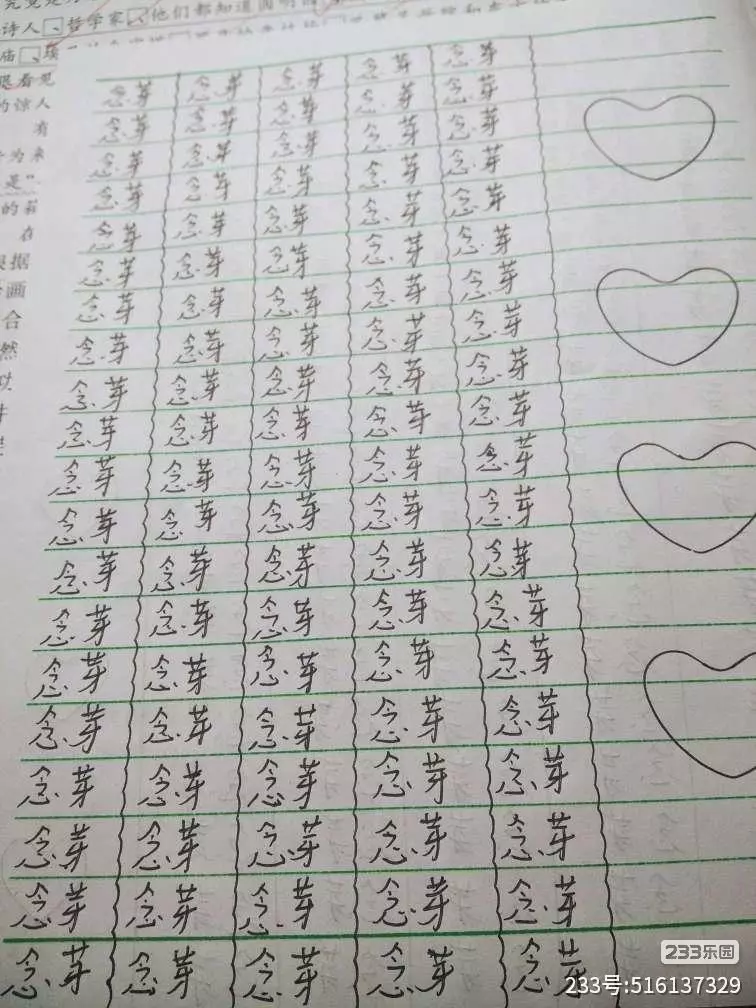 诗人、哲学家、他们都知道圆明园
庙、埃
看见
的惊人
有
为来
是”
的若
在
根据
画
合
然
念芽 念芽 念芽 念芽 念芽
念芽 念芽 念芽 念芽 念芽
念芽 念芽 念芽 念芽 念芽
念芽 念芽 念芽 念芽 念芽
念芽 念芽 念芽 念芽 念芽
念芽 念芽 念芽 念芽 念芽
念芽 念芽 念芽 念芽 念芽
念芽 念芽 念芽 念芽 念芽
念芽 念芽 念芽 念芽 念芽
念芽 念芽 念芽 念芽 念芽
念芽 念芽 念芽 念芽 念芽
念芽 念芽 念芽 念芽 念芽
念芽 念芽 念芽 念芽 念芽
念芽 念芽 念芽 念芽 念芽
念芽 念芽 念芽 念芽 念芽
念芽 念芽 念芽 念芽 念芽
念芽 念芽 念芽 念芽 念芽
念芽 念芽 念芽 念芽 念芽
念芽 念芽 念芽 念芽 念芽
念芽 念芽 念芽 念芽 念芽
233乐园
233号:516137329